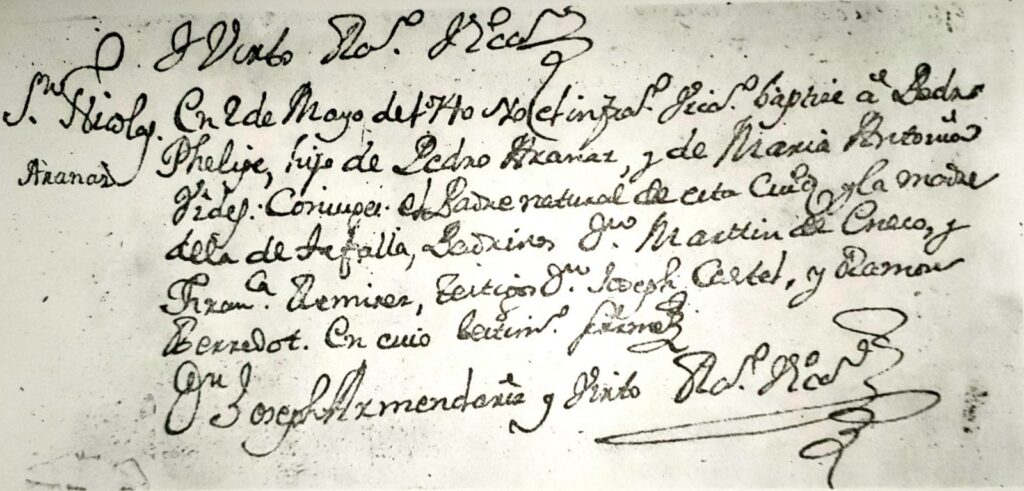 y Virto Rl. Vicro
Sn. Nicolas. En 2 de Mayo de 1740 Yo el infro. Vico. baptize â Pedro
Aranaz Phelipe, hijo de Pedro Aranaz, y de Maria Antonia
Vides. Coniuges. el Padre natural de esta Ciud. y la madre
dela de Tafalla, Padrinos Dn. Marttin de Eneco, y
Franca. Remirez, testigos Dn. Joseph Castel, y Ramon
Berredot. En cuio testimo. firmè
Dn Joseph Armendariz y Virto